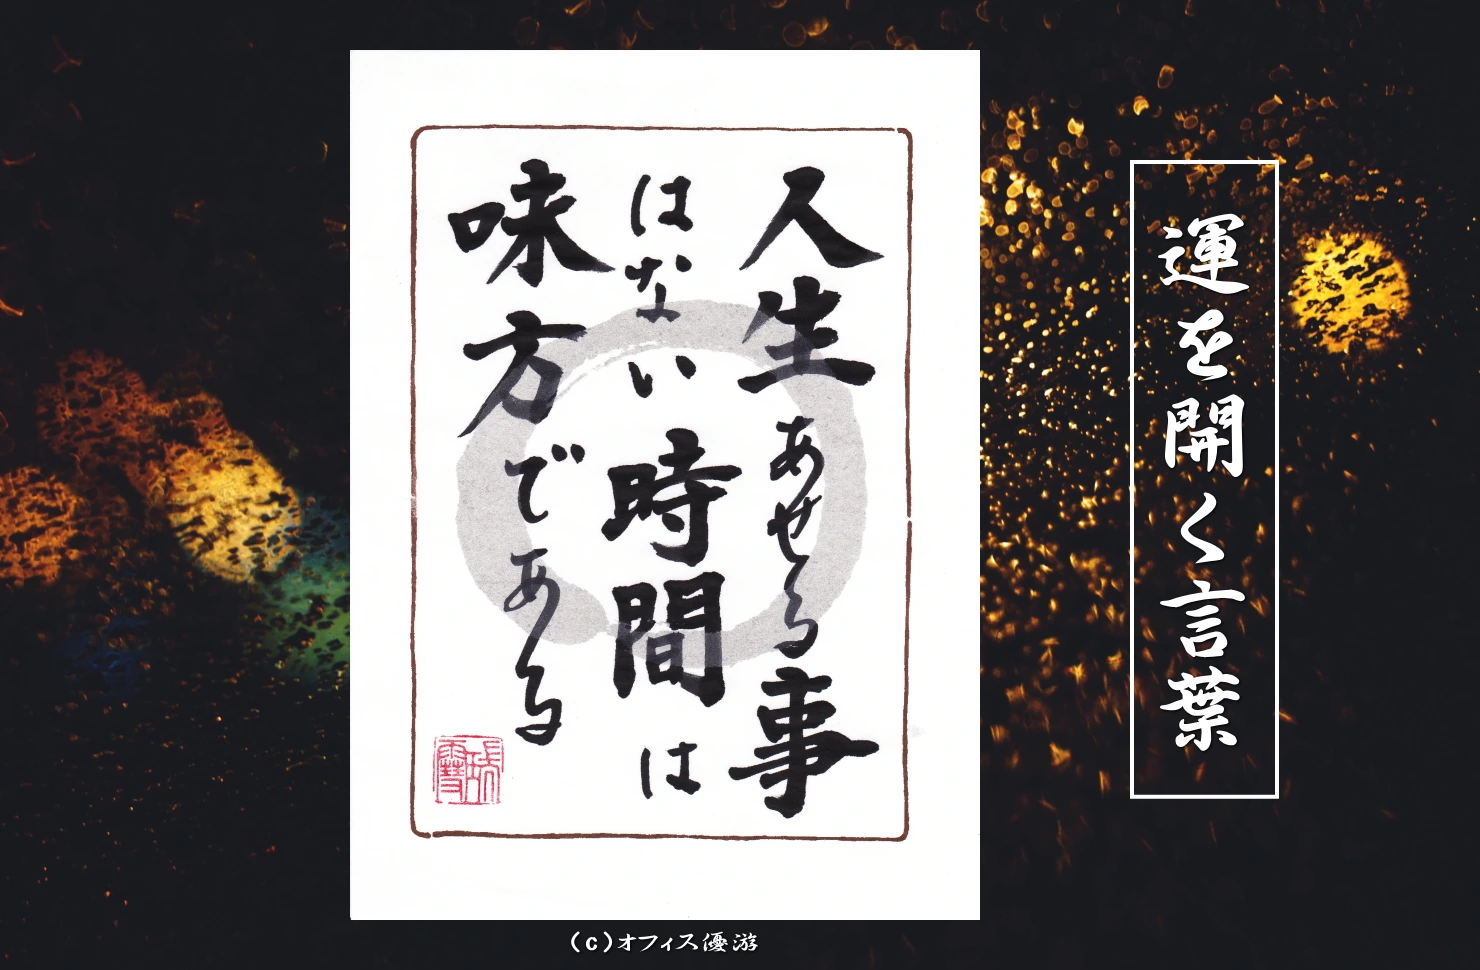 運を開く言葉
人生あせる事
はない時間は
味方である
(c)オフィス優游